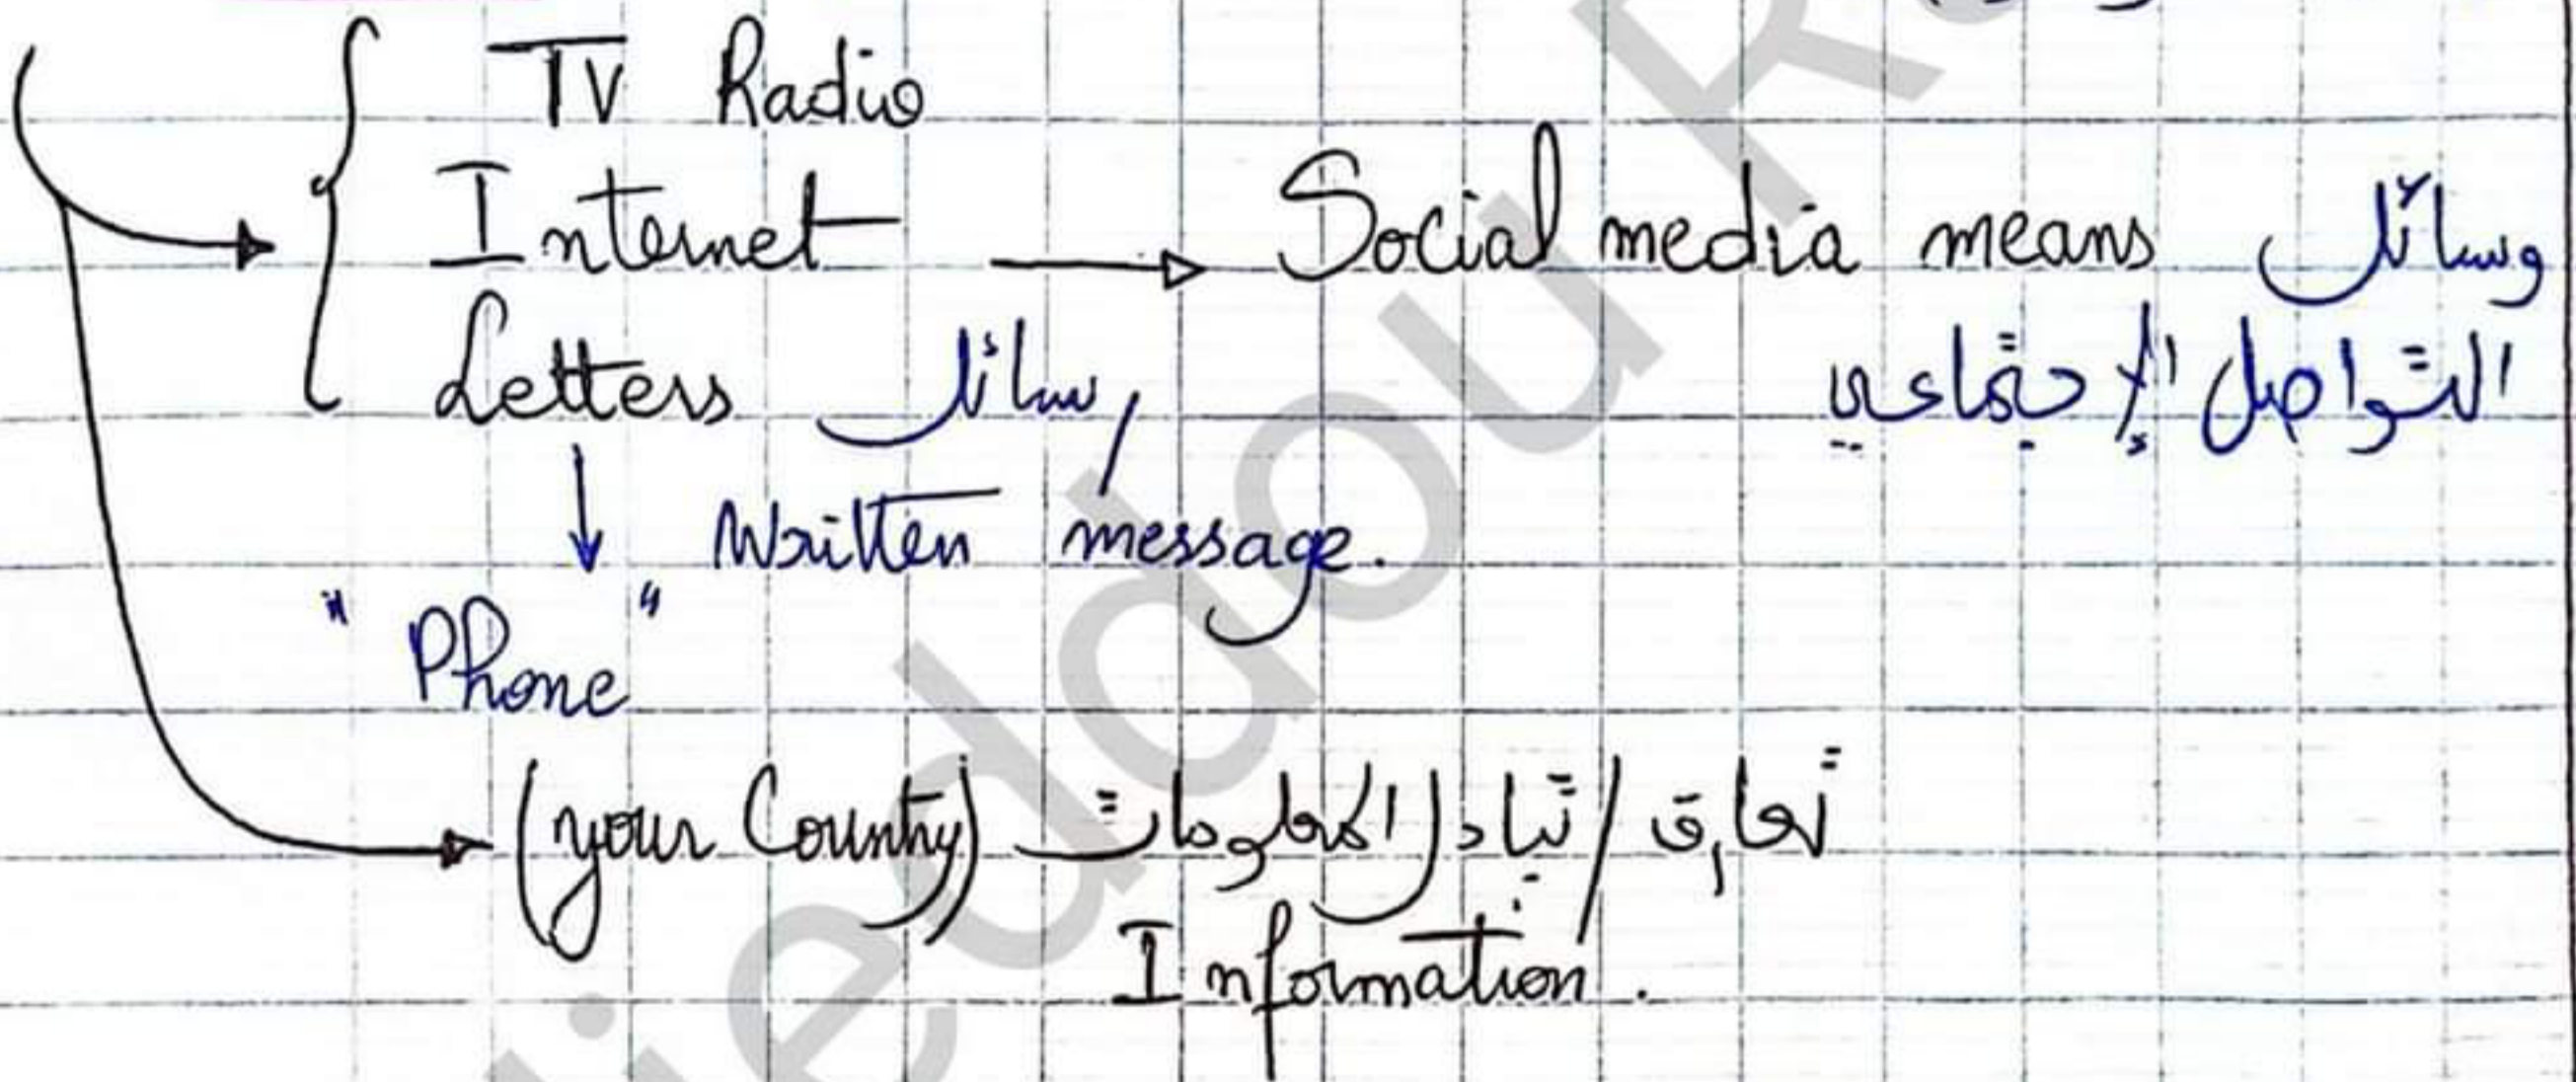 TV Radio
Internet → Social media means وسائل
التواصل الإجتماعي
Letters رسائل
↓ Written message.
"Phone"
(your Country) تعارف / تبادل المعلومات
Information.